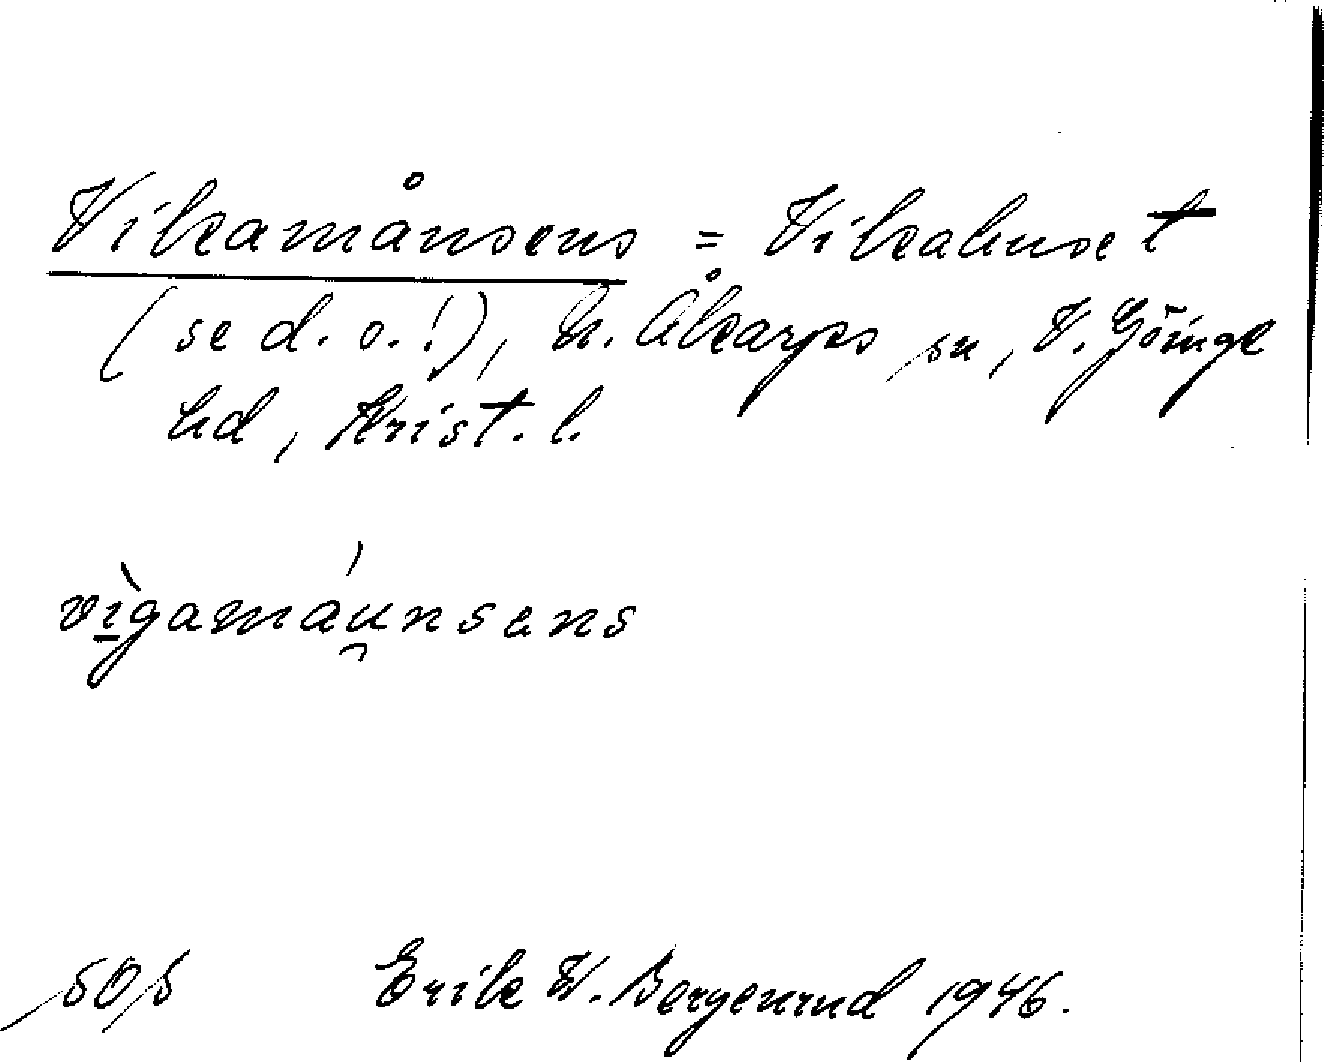 Vikamånsens = Vikahuset
(se d. o.!), N. Åkarps sn, V. Göinge
hd, Krist. l.
vìgamáu̯nsens
Erik W. Bergenrud 1946.